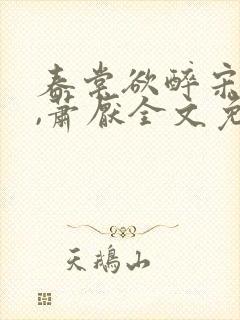 春棠欲醉宋
,萧厌全文免
天鹅山